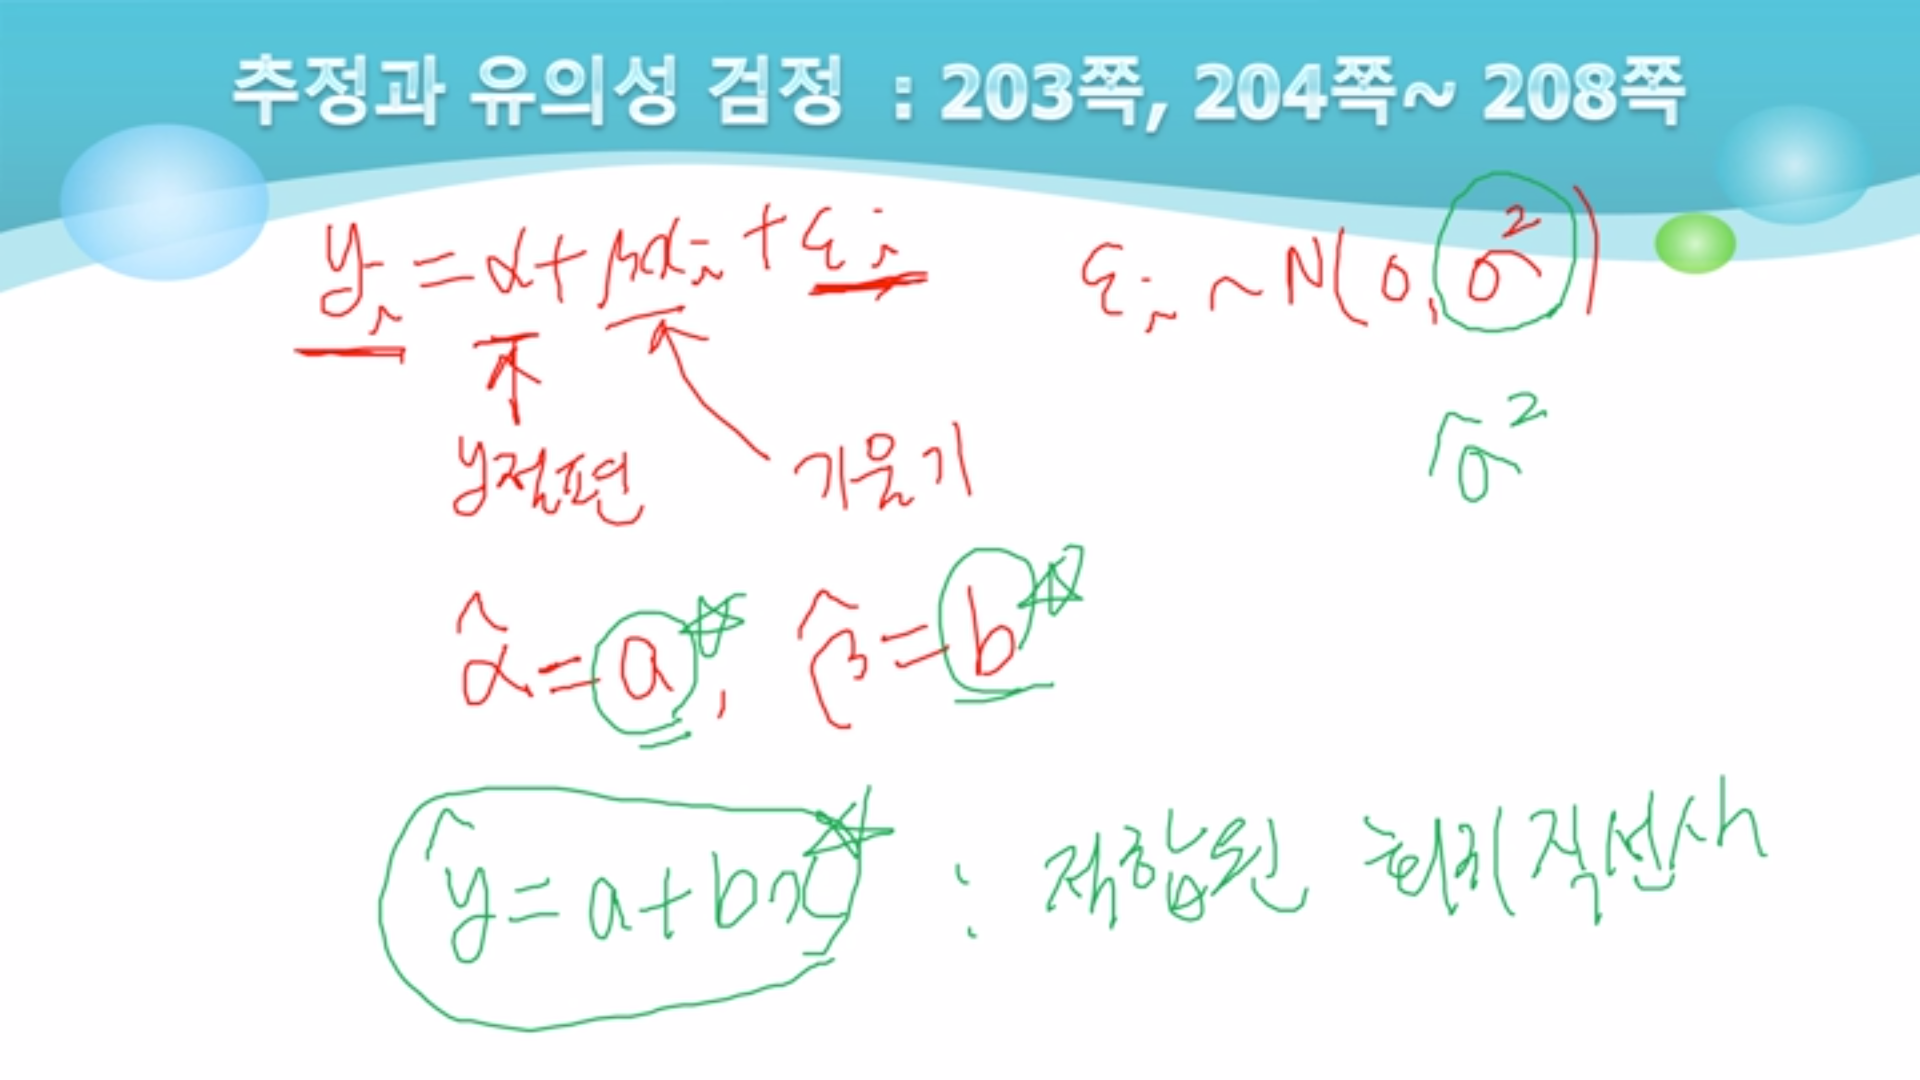 추정과 유의성 검정 : 203쪽, 204쪽~ 208쪽
yᵢ = α + βxᵢ + εᵢ   εᵢ ~ N(0, σ²)
σ̂²
y절편   기울기
α̂ = a, β̂ = b
ŷ = a + bx : 적합된 회귀직선식